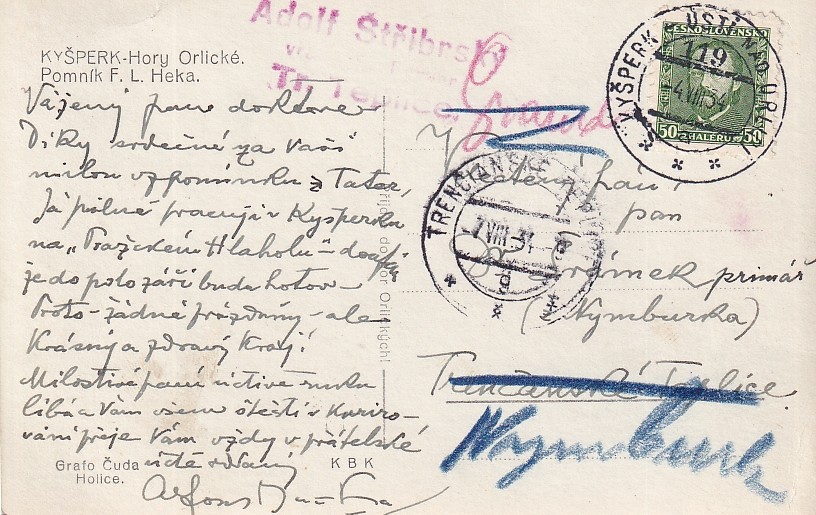 KYŠPERK-Hory Orlické.
Pomník F. L. Heka.
Vážený pane doktore
Díky srdečné za Vaši
milou vzpomínku z Tater,
Já pilně pracuji v Kyšperku
na „Pražském Hlaholu" – doufám
že do polo září budu hotov –
Proto – žádné prázdniny – ale
Krásný a zdravý Kraj!
Milostivé paní uctivě ruku
líbá a Vám všem štěstí v Kurýro-
vání přeje Vám vždy v přátelské
úctě oddaný
Grafo Čuda
Holice.
K B K
Orlických!
Adolf Stříbrský
Tr. Teplice.
KYŠPERK ÚSTÍ NAD ORL.
4.VIII.34
ČESKOSLOVENSKO
119
50 HALÉRŮ 50
TRENČIANSKE TEPLICE
7.VIII.34
g
pan
primář
(Nymburka)
Trenčanské Teplice
Nymburk